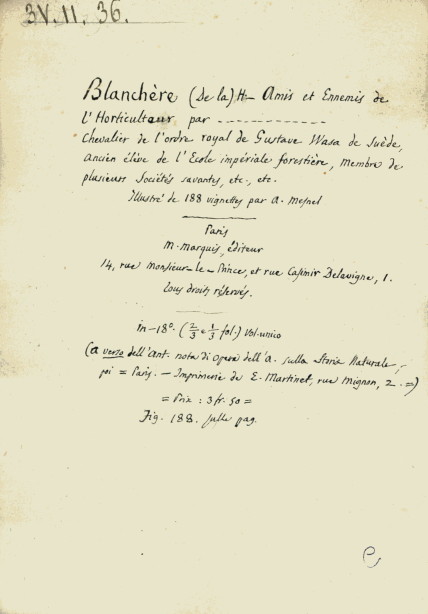 3V.11.36.
Blanchère (De la) H– Amis et Ennemis de
l'Horticulteur par -------------
Chevalier de l'ordre royal de Gustave Wasa de Suède,
ancien élève de l'Ecole impériale forestière, Membre de
plusieurs Sociétés savantes, etc, etc.
Illustré de 188 vignettes par A. Mesnel
Paris
M. Marquis, éditeur
14, rue Monsieur-le-Prince, et rue Casimir Delavigne, 1.
Tous droits réservés.
in-18º. (2/3 e 1/3 fol.) Vol. unico
(a verso dell'Ant. nota di opere dell'A. sulla Storia Naturale,
poi = Paris. – Imprimerie de E. Martinet, rue Mignon, 2. =)
= Prix : 3 fr. 50 =
Fig. 188. sulle pag.